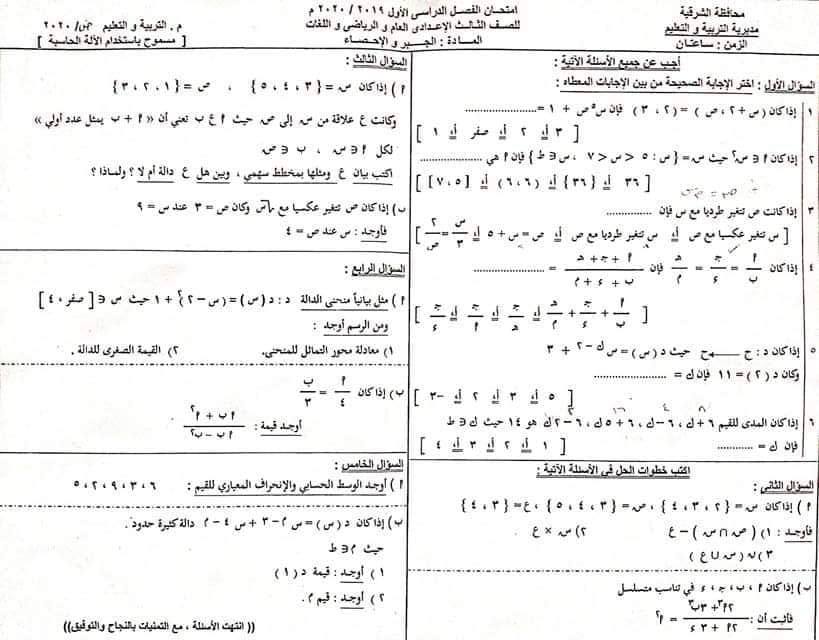 محافظة الشرقية
مديرية التربية و التعليم
الزمن : ساعتان
امتحان الفصل الدراسى الأول ٢٠١٩ / ٢٠٢٠ م
للصف الثالث الإعدادى العام و الرياضى و اللغات
المادة : الجبر و الإحصاء
م . التربية و التعليم / ٢٠٢٠
[ مسموح باستخدام الآلة الحاسبة ]
أجب عن جميع الأسئلة الآتية :
السؤال الأول : اختر الإجابة الصحيحة من بين الإجابات المعطاه :
١ إذا كان ( س + ٢ ، ص ) = ( ٢ ، ٣ ) فإن س٥ ص + ١ = ....................
[ ٣ أ، ٢ أ، صفر أ، ١ ]
٢ إذا كان ٢ ∋ س٢ حيث س = { س : ٥ < س < ٧ ، س ∋ ط } فإن ٢ هي ................
[ ٣٦ أ، {٣٦} أ، (٦ ، ٦) أ، ]٥ ، ٧[ ]
٣ إذا كانت ص تتغير طرديا مع س فإن ..............
[ س تتغير عكسيا مع ص أ، س تتغير طرديا مع ص أ، ص = س + ٥ أ، س/٣ = ٢/ص ]
٤ إذا كان ٢/ب = ج/ء = هـ/م فإن (٢ + ج + هـ)/(ب + ء + م) = ....................
[ ٢/ب + ج/ء + هـ/م أ، هـ/م أ، ج/٢ أ، ٢/ء ]
٥ إذا كان د : ح ← ح حيث د ( س ) = س ك - ٢ + ٣
وكان د ( ٢ ) = ١١ فإن ك = ....................
[ ٥ أ، ٣ أ، ٢ أ، -٣ ]
٦ إذا كان المدى للقيم ٦ + ك ، ٦ - ك ، ٦ + ٥ ك ، ٦ - ٢ ك هو ١٤ حيث ك ∋ ط
فإن ك = ............ [ ١ أ، ٢ أ، ٣ أ، ٤ ]
اكتب خطوات الحل في الأسئلة الآتية :
السؤال الثانى :
أ ) إذا كان س = { ٢ ، ٣ ، ٤ } ، ص = { ٣ ، ٤ ، ٥ } ، ع = { ٣ ، ٤ }
فأوجد : ١ ) ( ص ∩ س ) - ع ٢ ) س × ع
٣ ) ن ( س ∪ ع )
ب ) إذا كان ٢ ، ب ، ج ، ء في تناسب متسلسل
فأثبت أن :
السؤال الثالث :
أ ) إذا كان س = { ٣ ، ٤ ، ٥ } ، ص = { ١ ، ٢ ، ٣ }
وكانت ع علاقة من س إلى ص حيث ٢ ع ب تعني أن « ٢ + ب يمثل عدد أولي »
لكل ٢ ∋ س ، ب ∋ ص
اكتب بيان ع ومثلها بمخطط سهمي ، وبين هل ع دالة أم لا ؟ ولماذا ؟
ب ) إذا كان ص تتغير عكسيا مع √س وكان ص = ٣ عند س = ٩
فأوجد : س عند ص = ٤
السؤال الرابع :
أ ) مثل بيانياً منحنى الدالة د : د ( س ) = ( س - ٢ )٢ + ١ حيث س ∋ [ صفر ، ٤ ]
ومن الرسم أوجد :
١ ) معادلة محور التماثل للمنحنى. ٢ ) القيمة الصغرى للدالة .
ب ) إذا كان ٢/٤ = ب/٣
أوجد قيمة :
السؤال الخامس :
أ ) أوجد الوسط الحسابي والإنحراف المعياري للقيم : ٦ ، ٣ ، ٩ ، ٢ ، ٥
ب ) إذا كان د ( س ) = س م - ٣ + س ٤ - م دالة كثيرة حدود .
حيث م ∋ ط
١ ) أوجد : قيمة د ( ١ )
٢ ) أوجد : قيم م .
(( انتهت الأسئلة ، مع التمنيات بالنجاح والتوفيق ))